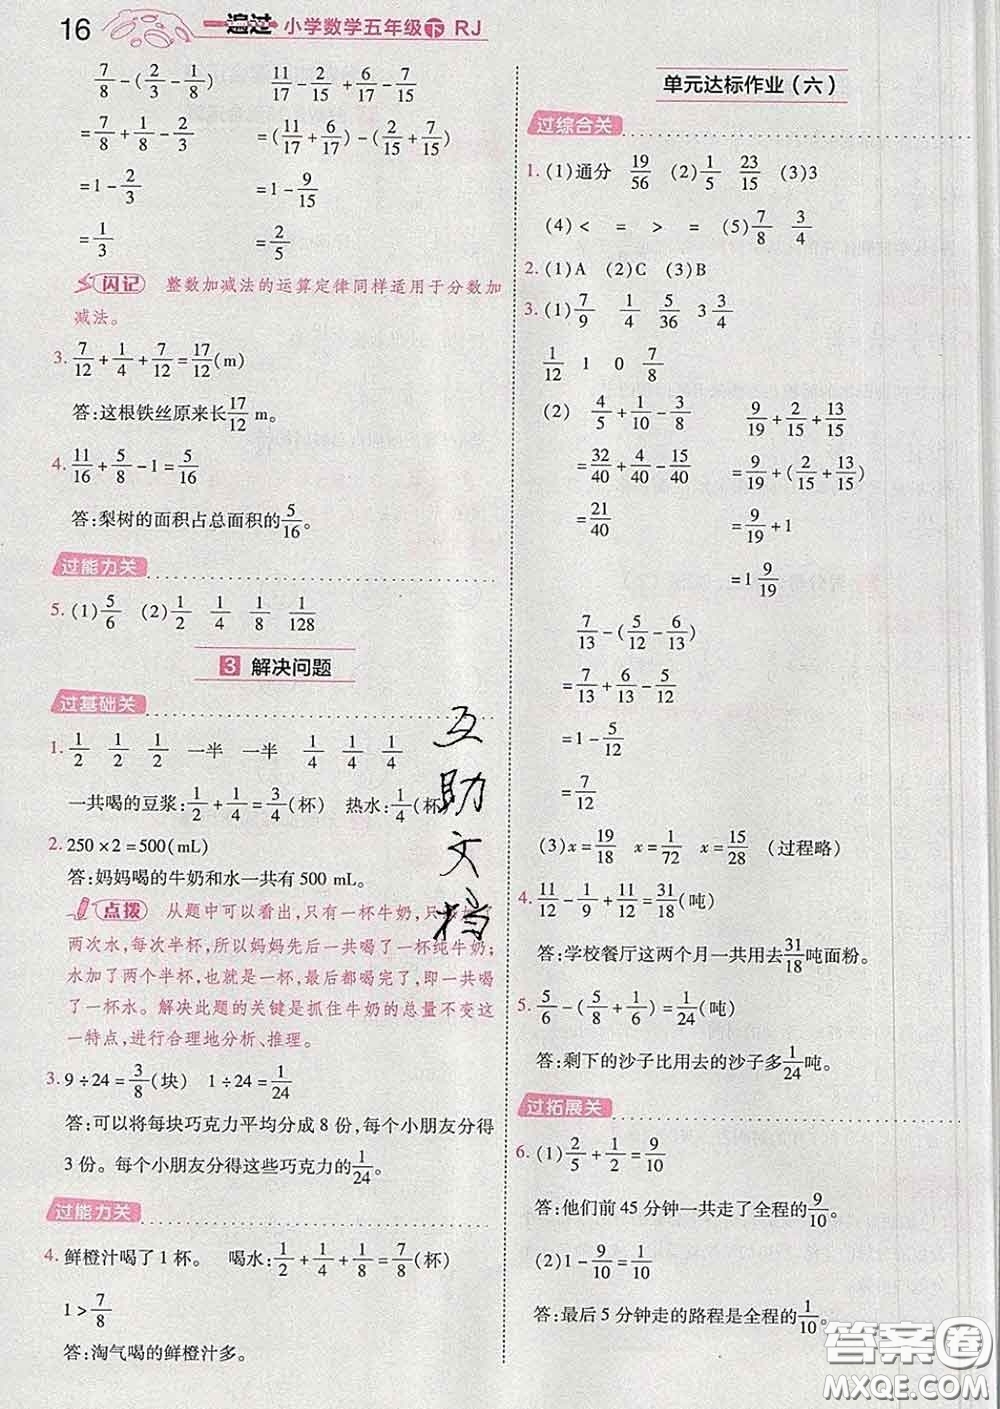 16 一遍过 小学数学五年级下 RJ
7/8-(2/3-1/8)  11/17-2/15+6/17-7/15
=7/8+1/8-2/3  =(11/17+6/17)-(2/15+7/15)
=1-2/3  =1-9/15
=1/3  =2/5
闪记 整数加减法的运算定律同样适用于分数加
减法。
3. 7/12+1/4+7/12=17/12(m)
答:这根铁丝原来长17/12 m。
4. 11/16+5/8-1=5/16
答:梨树的面积占总面积的5/16。
过能力关
5. (1)5/6 (2)1/2 1/4 1/8 1/128
3 解决问题
过基础关
1. 1/2 1/2 1/2 一半 一半 1/4 1/4 1/4
一共喝的豆浆:1/2+1/4=3/4(杯) 热水:1/4(杯)
2. 250×2=500(mL)
答:妈妈喝的牛奶和水一共有 500 mL。
点拨 从题中可以看出,只有一杯牛奶,
两次水,每次半杯,所以妈妈先后一共喝了一杯纯牛奶;
水加了两个半杯,也就是一杯,最后都喝完了,即一共喝
了一杯水。解决此题的关键是抓住牛奶的总量不变这
一特点,进行合理地分析、推理。
3. 9÷24=3/8(块) 1÷24=1/24
答:可以将每块巧克力平均分成 8 份,每个小朋友分得
3 份。每个小朋友分得这些巧克力的1/24。
过能力关
4. 鲜橙汁喝了 1 杯。 喝水:1/2+1/4+1/8=7/8(杯)
1>7/8
答:淘气喝的鲜橙汁多。
互助文档
单元达标作业(六)
过综合关
1. (1)通分 19/56 (2)1/5 23/15 (3)3
(4)< = > = (5)7/8 3/4
2. (1)A (2)C (3)B
3. (1)7/9 1/4 5/36 3 3/4
1/12 1 0 7/8
(2) 4/5+1/10-3/8  9/19+2/15+13/15
=32/40+4/40-15/40  =9/19+(2/15+13/15)
=21/40  =9/19+1
=1 9/19
7/13-(5/12-6/13)
=7/13+6/13-5/12
=1-5/12
=7/12
(3)x=19/18 x=1/72 x=15/28 (过程略)
4. 11/12-1/9+11/12=31/18(吨)
答:学校餐厅这两个月一共用去31/18吨面粉。
5. 5/6-(5/8+1/6)=1/24(吨)
答:剩下的沙子比用去的沙子多1/24吨。
过拓展关
6. (1)2/5+1/2=9/10
答:他们前 45 分钟一共走了全程的9/10。
(2)1-9/10=1/10
答:最后 5 分钟走的路程是全程的1/10。
答案圈
MXQE.COM